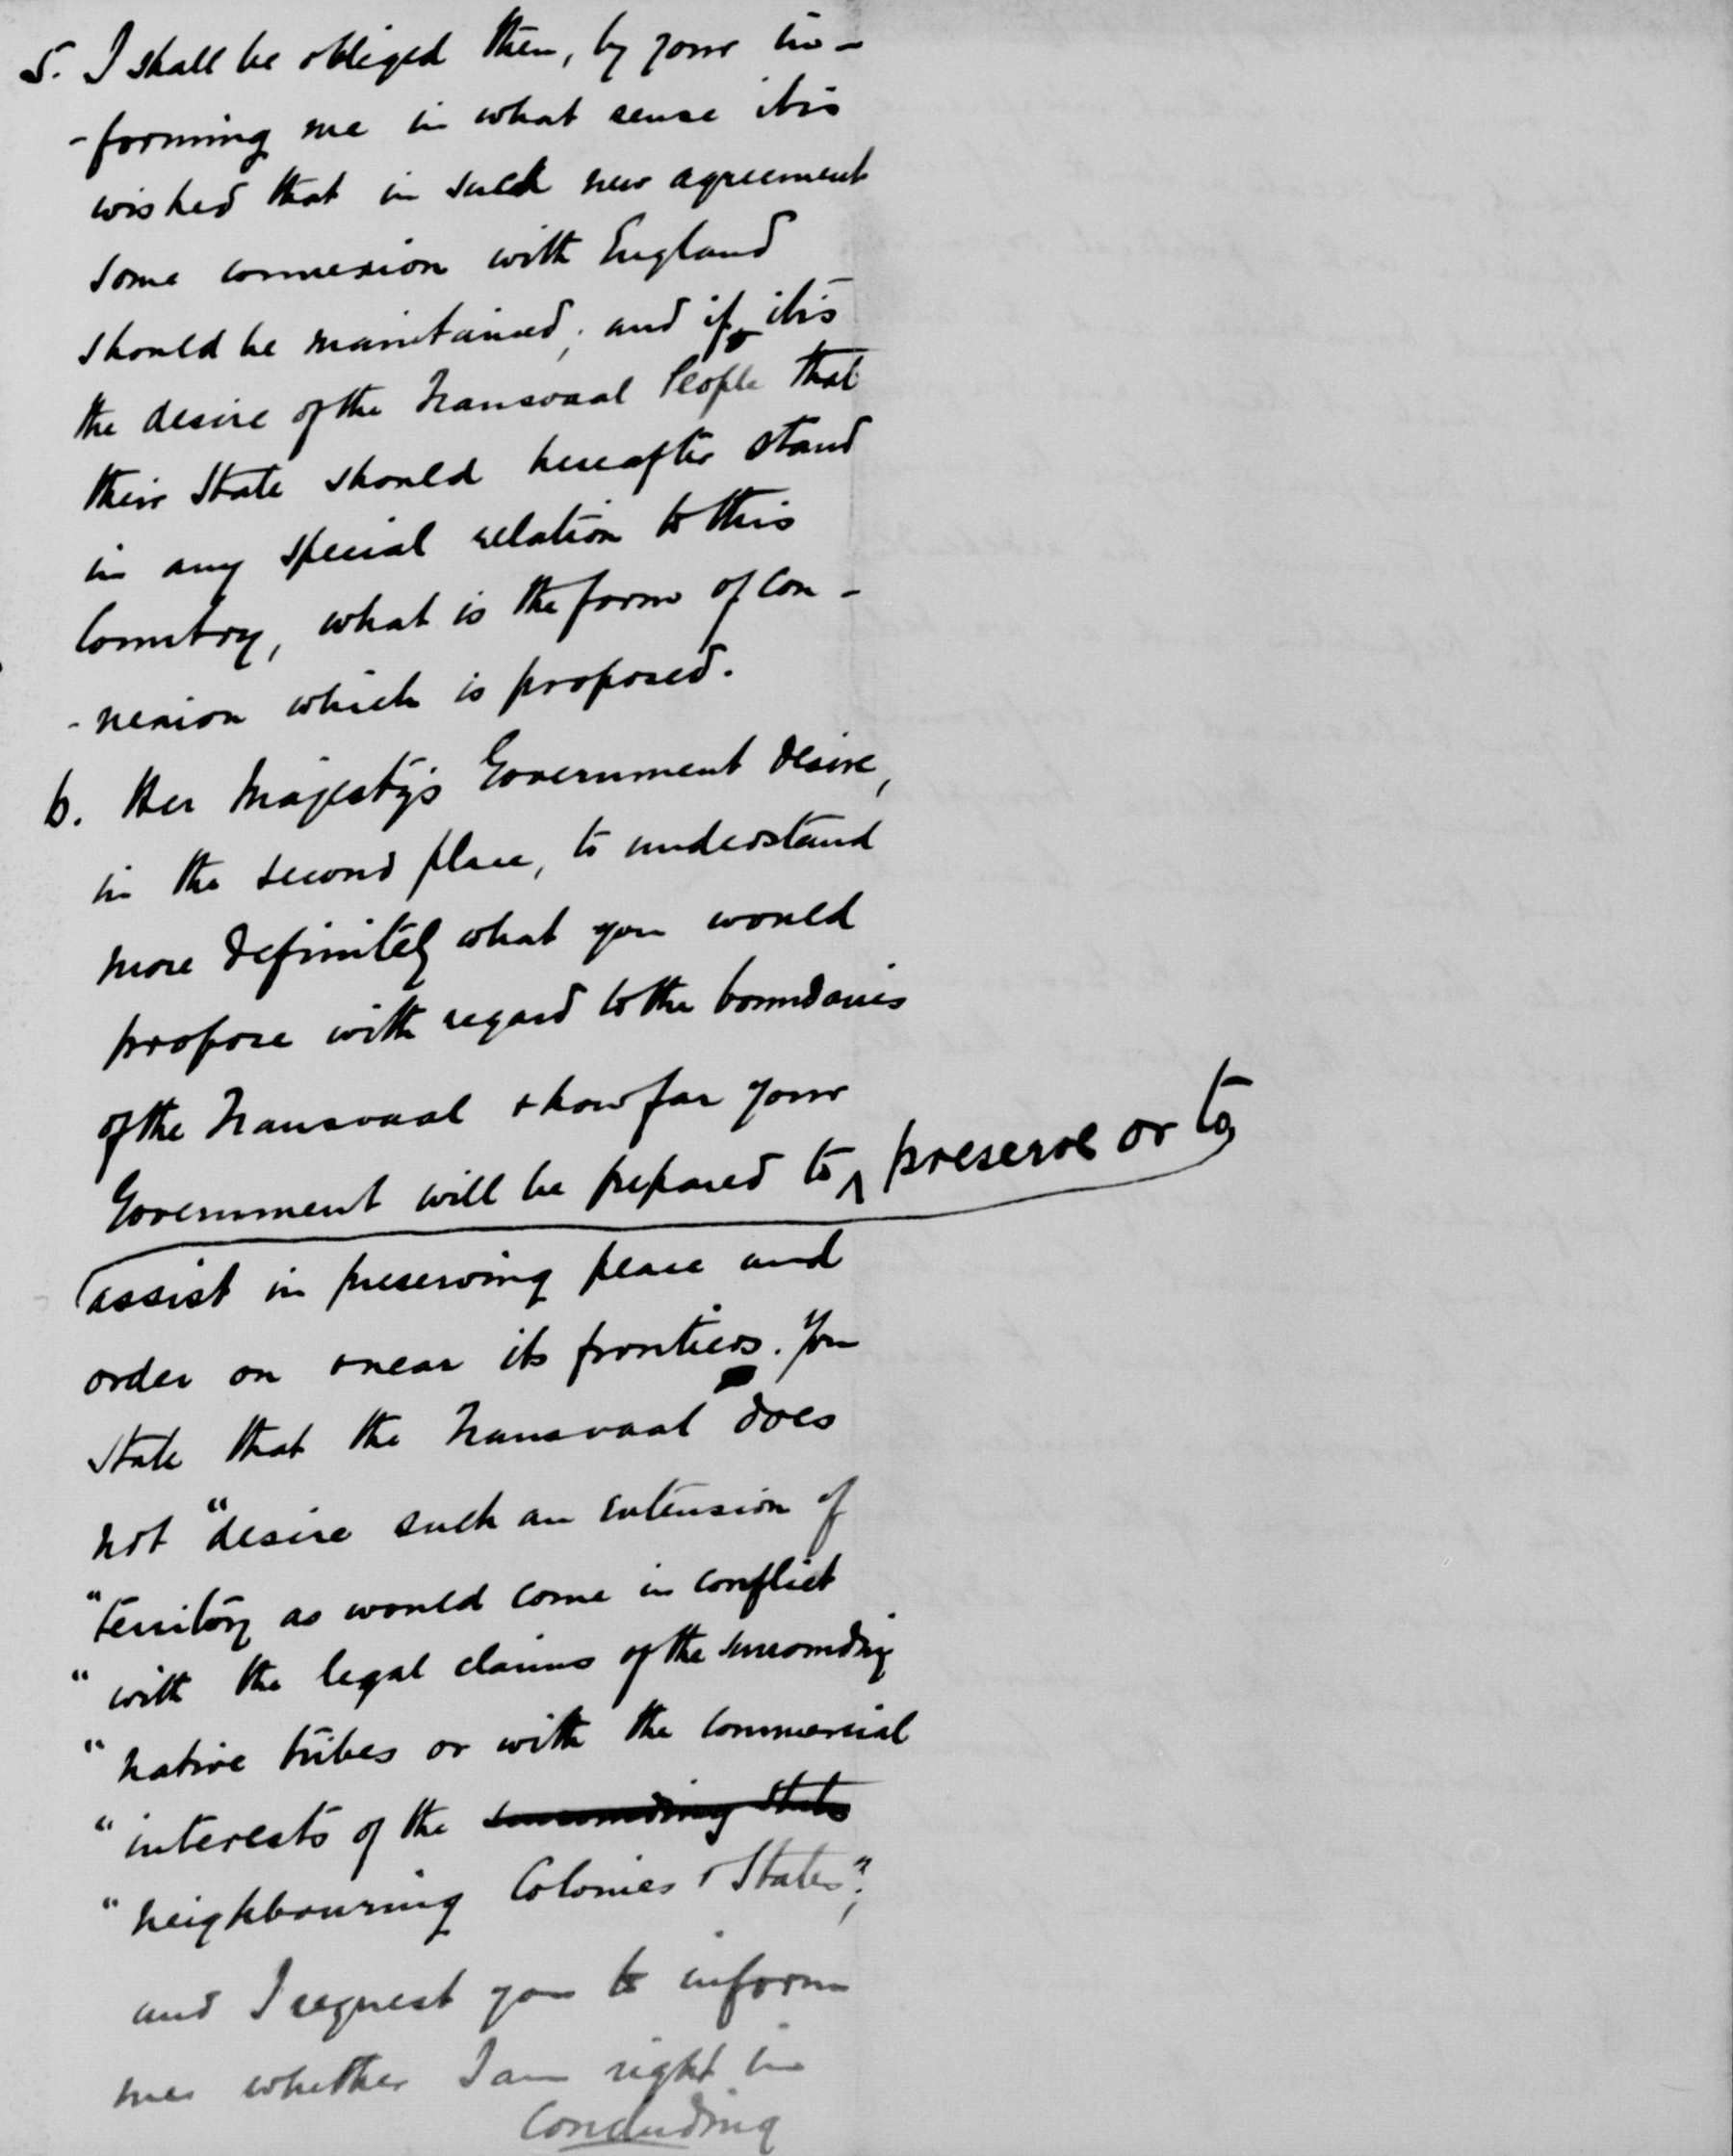 5. I shall be obliged then, by your in-
-forming me in what sense it is
wished that in such new agreement
some connexion with England
should be maintained; and if it is
the desire of the Transvaal People that
their State should hereafter stand
in any special relation to this
Country, what is the form of con-
-nexion which is proposed.
6. Her Majesty's Government desire,
in the second place, to understand
more definitely what you would
propose with regard to the boundaries
of the Transvaal & how far your
Government will be prepared to ^ preserve or to
assist in preserving peace and
order on & near its frontiers. You
state that the Transvaal does
not "desire such an extension of
"territory as would come in conflict
"with the legal claims of the surrounding
"native tribes or with the commercial
"interests of the surrounding States
"neighbouring Colonies & States";
and I request you to inform
me whether I am right in
concluding